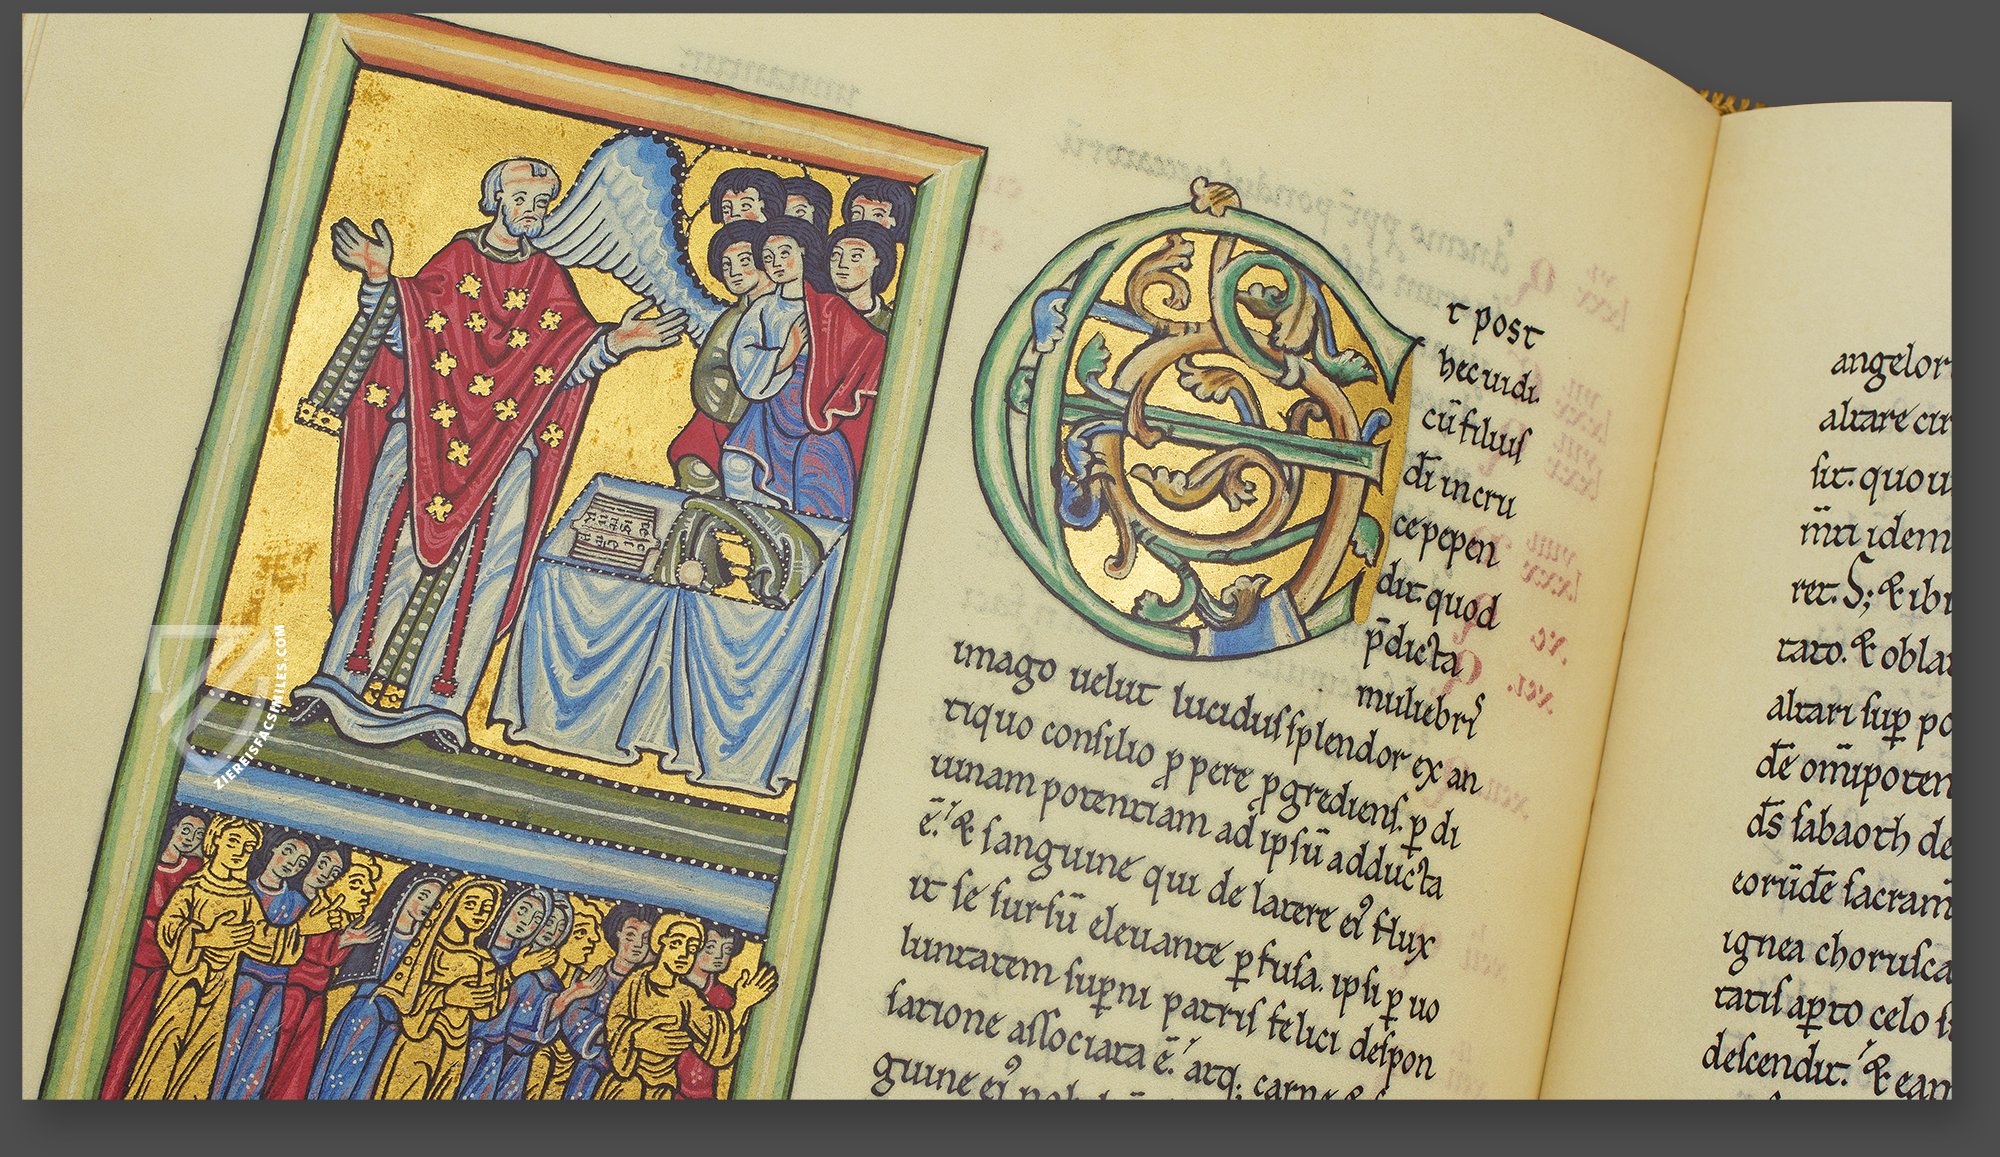 Et post
hec uidi.
cū filiuſ
dī in cru
ce pepen
dit quod
p̄dicta
muliebriſ
imago uelut lucidusſplendor ex an
tiquo conſilio ꝓpere ꝓgrediens. ꝑ di
uinam potentiam ad ipſū adducta
ē. & ſanguine qui de latere eiꝰ flux
it ſe ſurſū eleuante ꝑfuſa. ipſi ꝑ uo
luntatem ſuꝑni patriſ felici deſpon
ſatione aſſociata ē. atq; carne &
guine eiꝰ
angelor
altare cir
ſit. quo u
m̄ri idem
ret. S; & ibi
tato. & obla
altari ſuꝑ po
dē om̄ipoten
dſ̄ ſabaoth de
eorūdē ſacram̄
ignea choruſca
tatiſ aꝑto celo
deſcendit. & eam
ZIEREISFACSIMILES.COM